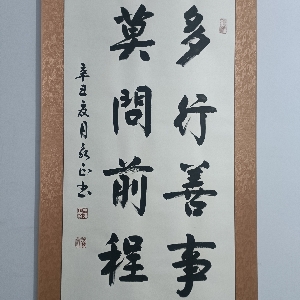 多行善事
莫問前程
辛丑夏月永正书